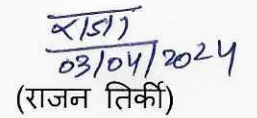 03/04/2024
(राजन तिर्की)